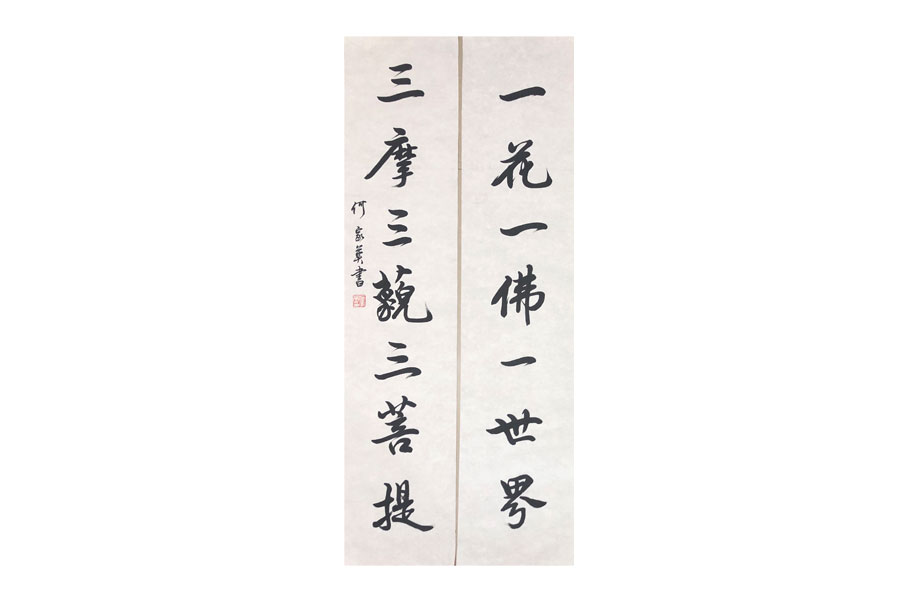 一花一佛一世界
三摩三藐三菩提
何家英書